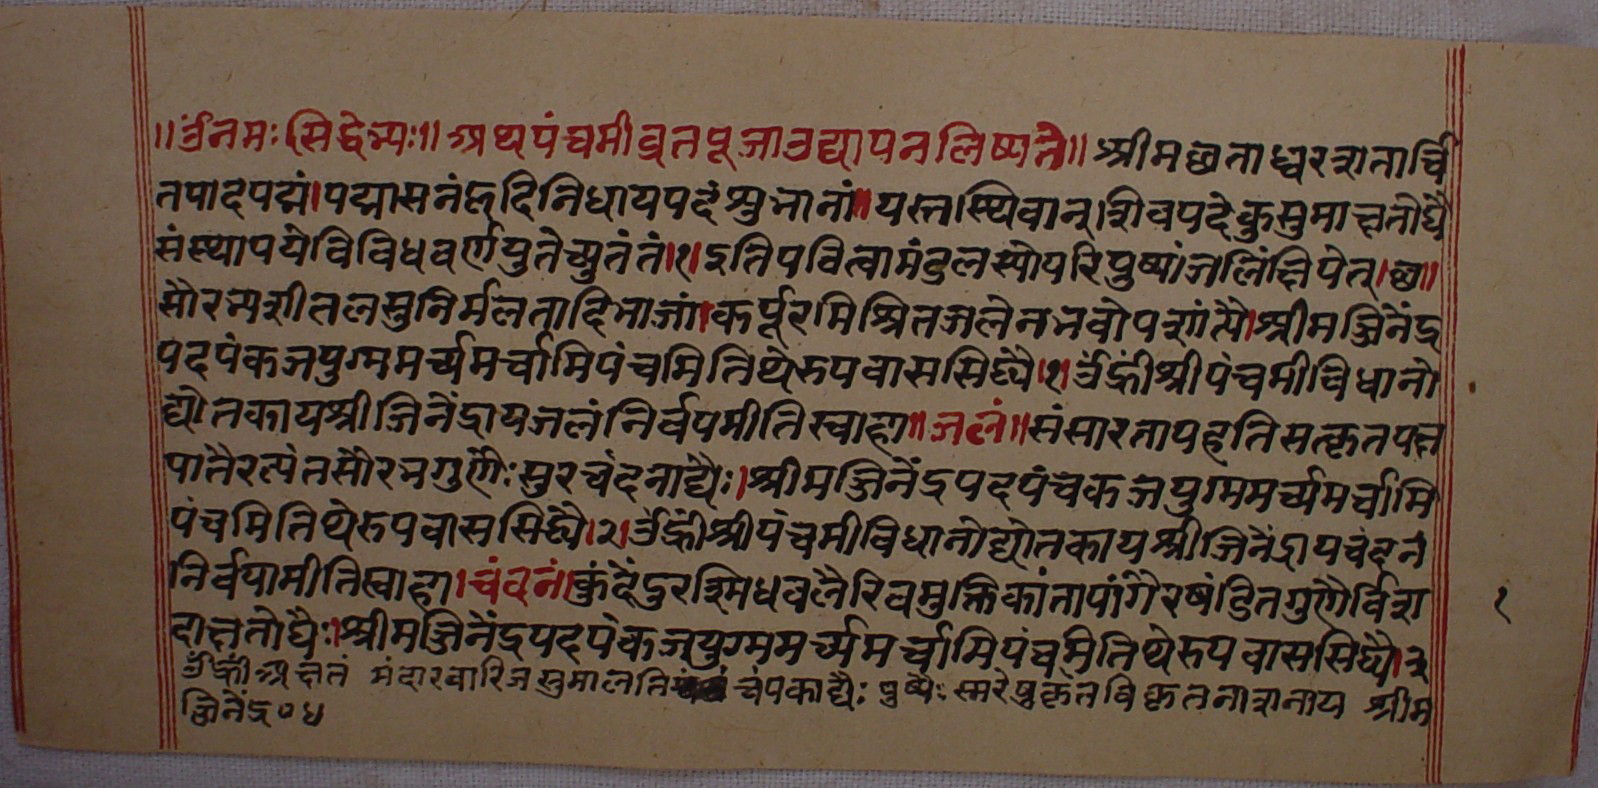 ॥ॐनमःसिद्धेभ्यः॥अथपंचमीव्रतपूजाउद्यापनलिष्यते॥श्रीमछताध्वरशतार्चि
तपादपद्मं।पद्मासनंहृदिनिधायपदंशुभानां॥यस्तस्थिवान्।शिवपदेकुसुमाक्षतोघै
संस्थापयेविविधवर्णयुतेच्युतंतं।१।इतिपवित्वामंडलस्योपरिपुष्पांजलिंक्षिपेत्।छ॥
सौरभ्यशीतलसुनिर्मलतादिभाजां।कर्पूरमिश्रितजलेनभवोपशांत्यै।श्रीमज्जिनेंद्र
पदपंकजयुग्ममर्च्यमर्चामिपंचमितिथेरुपवाससिद्ध्यै।१।ॐह्रींश्रीपंचमीविधानो
द्योतकायश्रीजिनेंद्रायजलंनिर्वपमीतिस्वाहा॥जलं॥संसारतापहतिसत्कृतपक्ष
पातैरत्यंतसौरभगुणैःसुरचंदनाद्यैः।श्रीमज्जिनेंद्रपदपंचकजयुग्ममर्च्यमर्चामि
पंचमितिथेरुपवाससिद्ध्यै।२।ॐह्रींश्रीपंचमीविधानोद्योतकायश्रीजिनेंद्रायचंदनं
निर्वपामीतिस्वाहा।चंदनं।कुंदेंदुरश्मिधवलैरिवमुक्तिकांतापांगैरषंडितगुणैर्विश
दाक्षतोघैः।श्रीमज्जिनेंद्रपदपंकजयुग्ममर्च्यमर्चामिपंचमितिथेरुपवाससिद्ध्यै।३
ॐह्रीं अक्षतं मंदारवारिजसुमालति चंपकाद्यैः पुष्पैः स्मरेषुकृतविकृतनाशनाय श्रीम
ज्जिनेंद्र०४
१